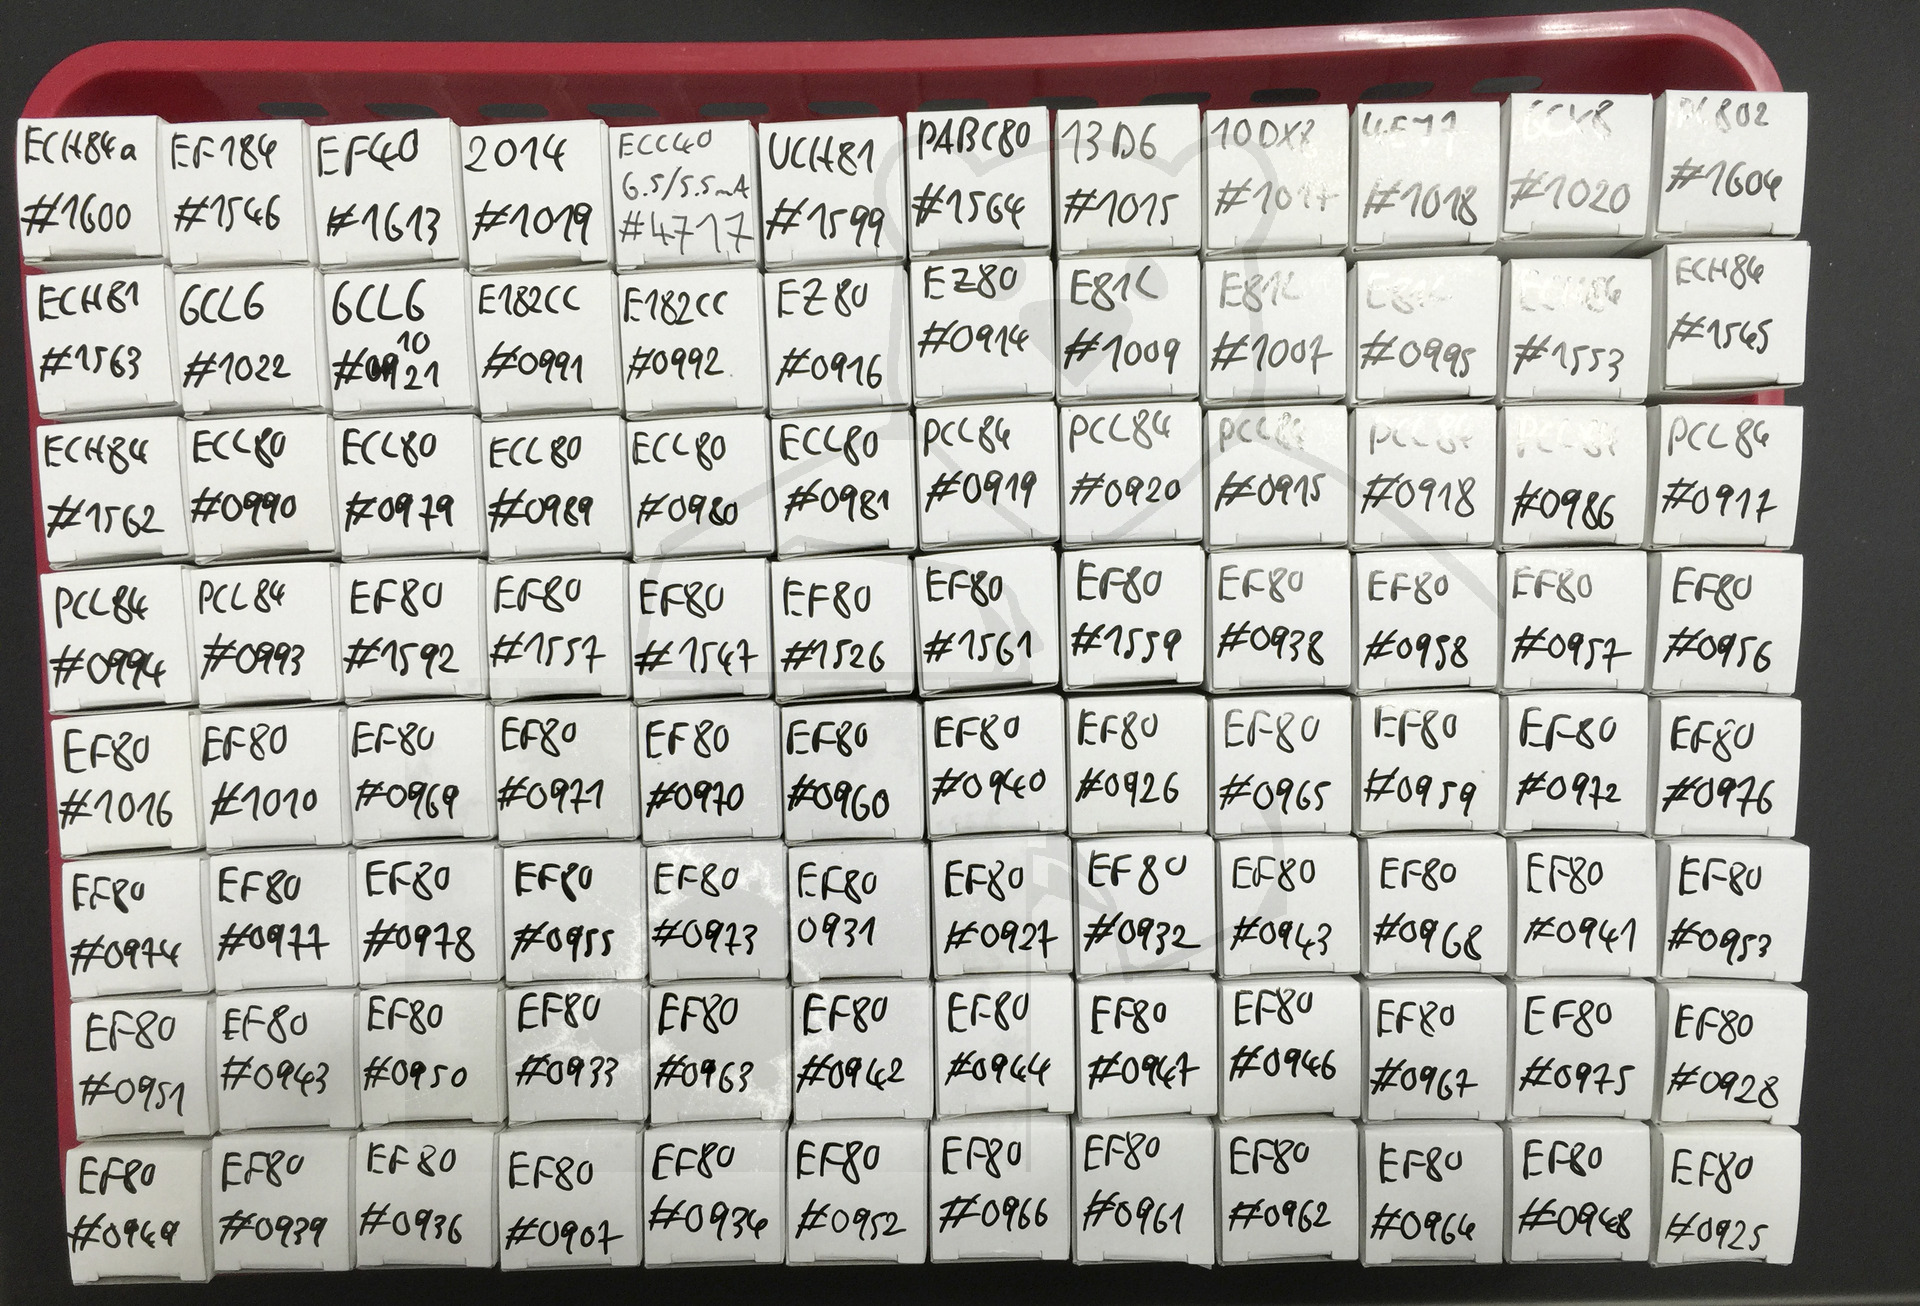 ECH84a
#1600
EF184
#1546
EF40
#1613
2014
#1019
ECC40
6.5/5.5mA
#4717
UCH81
#1599
PABC80
#1564
13D6
#1015
10DX8
#1017
#1018
6CX8
#1020
#1604
ECH81
#1563
6CL6
#1022
6CL6
10
#0921
E182CC
#0991
E182CC
#0992
EZ80
#0916
EZ80
#0914
E81L
#1009
E81L
#1007
E81L
#0995
ECH84
#1553
ECH84
#1545
ECH84
#1562
ECL80
#0990
ECL80
#0979
ECL80
#0989
ECL80
#0980
ECL80
#0981
PCL84
#0919
PCL84
#0920
PCL84
#0915
PCL84
#0918
PCL84
#0986
PCL84
#0917
PCL84
#0994
PCL84
#0993
EF80
#1592
EF80
#1557
EF80
#1547
EF80
#1526
EF80
#1561
EF80
#1559
EF80
#0938
EF80
#0958
EF80
#0957
EF80
#0956
EF80
#1016
EF80
#1010
EF80
#0969
EF80
#0971
EF80
#0970
EF80
#0960
EF80
#0940
EF80
#0926
EF80
#0965
EF80
#0959
EF80
#0972
EF80
#0976
EF80
#0974
EF80
#0977
EF80
#0978
EF80
#0955
EF80
#0973
EF80
0931
EF80
#0927
EF80
#0932
EF80
#0943
EF80
#0968
EF80
#0941
EF80
#0953
EF80
#0951
EF80
#0943
EF80
#0950
EF80
#0933
EF80
#0963
EF80
#0942
EF80
#0944
EF80
#0947
EF80
#0946
EF80
#0967
EF80
#0975
EF80
#0928
EF80
#0949
EF80
#0939
EF80
#0936
EF80
#0907
EF80
#0934
EF80
#0952
EF80
#0966
EF80
#0961
EF80
#0962
EF80
#0964
EF80
#0948
EF80
#0925